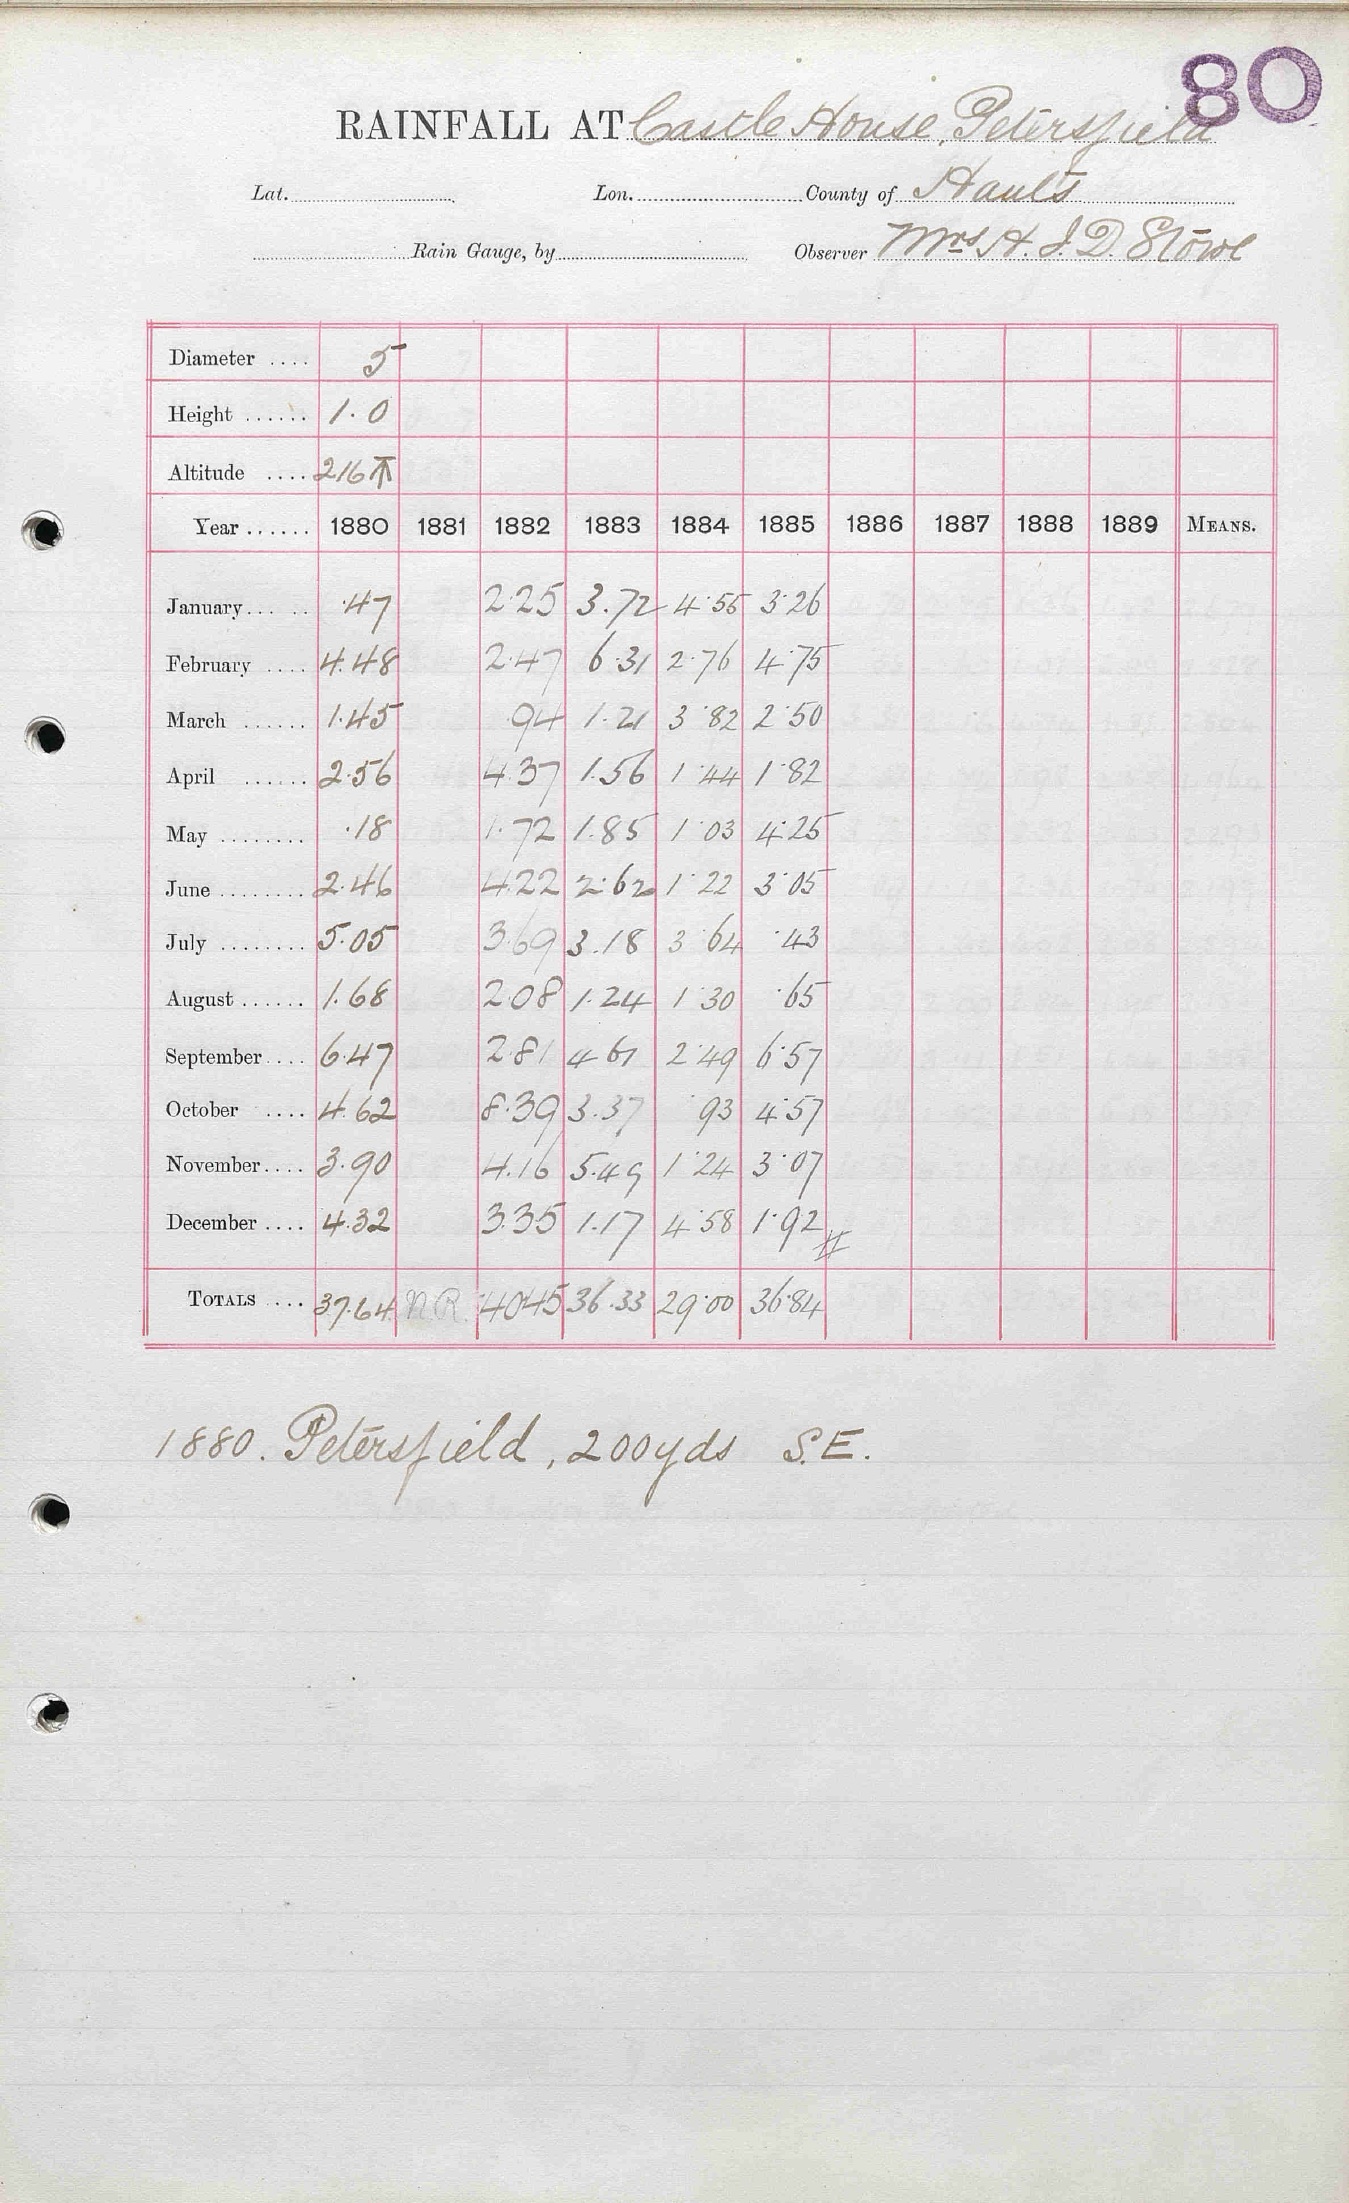 80
RAINFALL AT Castle House, Petersfield
Lat. Lon. County of Hants
Rain Gauge, by Observer Mrs H. J. D. Stowe
Diameter .... 5
Height ...... 1.0
Altitude .... 216
Year ...... 1880 1881 1882 1883 1884 1885 1886 1887 1888 1889 MEANS.
January... .. .47 2.25 3.72 4.55 3.26
February .... 4.48 2.47 6.31 2.76 4.75
March ...... 1.45 .94 1.21 3.82 2.50
April ...... 2.56 4.37 1.56 1.44 1.82
May ........ .18 1.72 1.85 1.03 4.25
June ........ 2.46 4.22 2.62 1.22 3.05
July ........ 5.05 3.69 3.18 3.64 .43
August ...... 1.68 2.08 1.24 1.30 .65
September.... 6.47 2.81 4.61 2.49 6.57
October .... 4.62 8.39 3.37 .93 4.57
November.... 3.90 4.16 5.49 1.24 3.07
December .... 4.32 3.35 1.17 4.58 1.92
TOTALS .... 37.64 N.R. 40.45 36.33 29.00 36.84
1880. Petersfield, 200yds S.E.